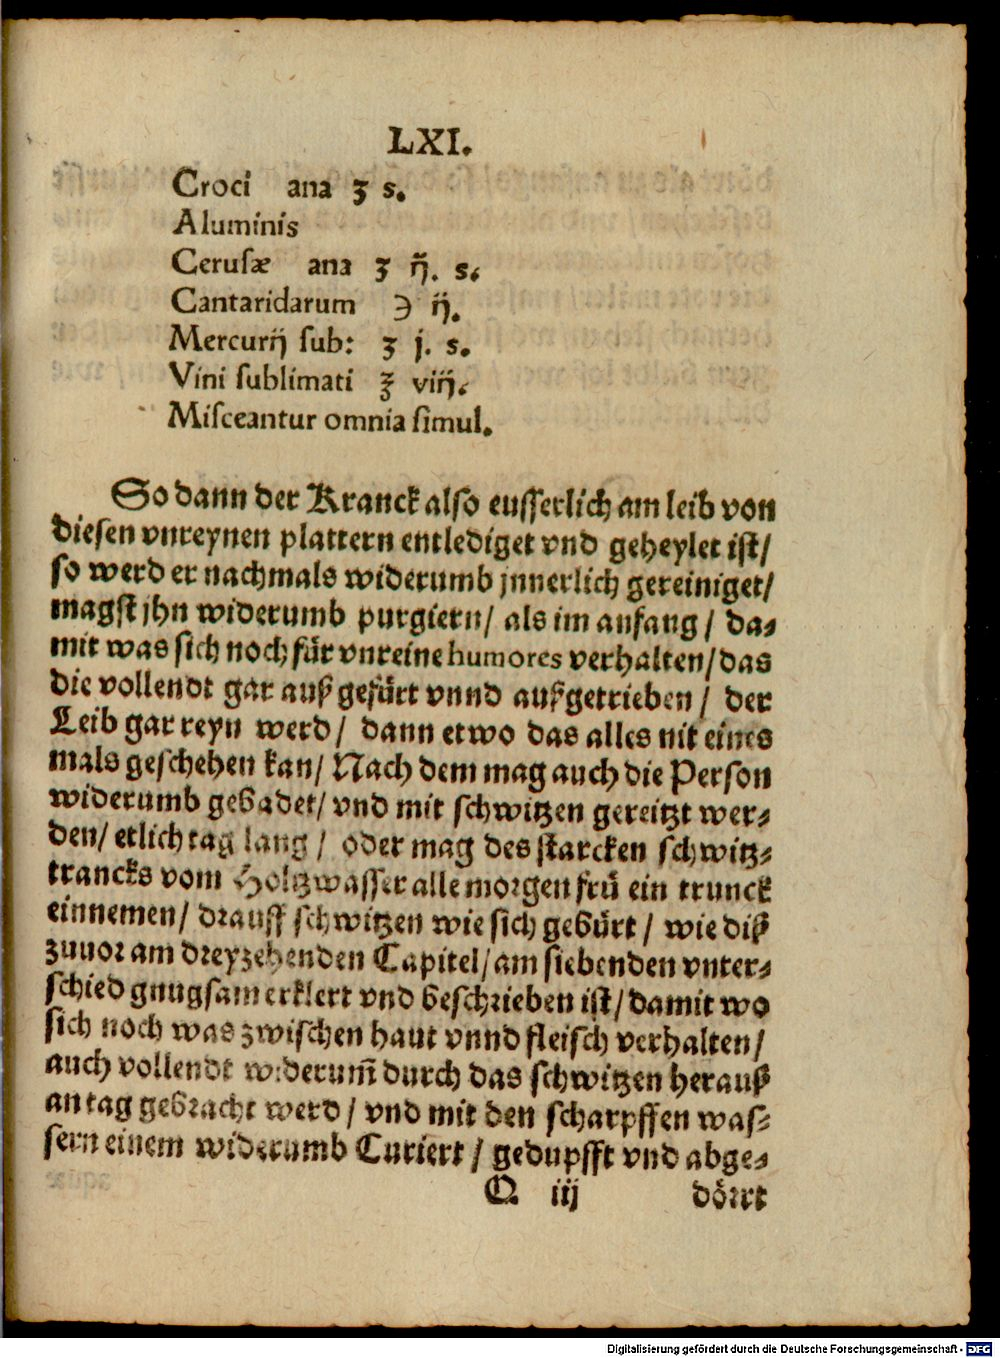 LXI.
Croci ana ʒ s.
Aluminis
Cerusæ ana ʒ ij. s.
Cantaridarum ℈ ij.
Mercurij sub: ʒ j. s.
Vini sublimati ℥ viij.
Misceantur omnia simul.
So dann der Kranck also eusserlich am leib von
diesen vnreynen plattern entlediget vnd geheylet ist/
so werd er nachmals widerumb jnnerlich gereiniget/
magst jhn widerumb purgiern/ als im anfang/ da-
mit was sich noch für vnreine humores verhalten/das
die vollendt gar auß gefürt vnnd außgetrieben/ der
Leib gar reyn werd/ dann etwo das alles nit eines
mals geschehen kan/ Nach dem mag auch die Person
widerumb gebadet/ vnd mit schwitzen gereitzt wer-
den/ etlich tag lang/ oder mag des starcken schwitz-
trancks vom Holtzwasser alle morgen frü ein trunck
einnemen/ drauff schwitzen wie sich gebürt/ wie diß
zuuor am dreyzehenden Capitel/ am siebenden vnter-
schied gnugsam erklert vnd beschrieben ist/ damit wo
sich noch was zwischen haut vnnd fleisch verhalten/
auch vollendt widerum̄ durch das schwitzen herauß
an tag gebracht werd/ vnd mit den scharpffen was-
sern einem widerumb Curiert/ gedupfft vnd abge-
Q iij dörrt
Digitalisierung gefördert durch die Deutsche Forschungsgemeinschaft - DFG